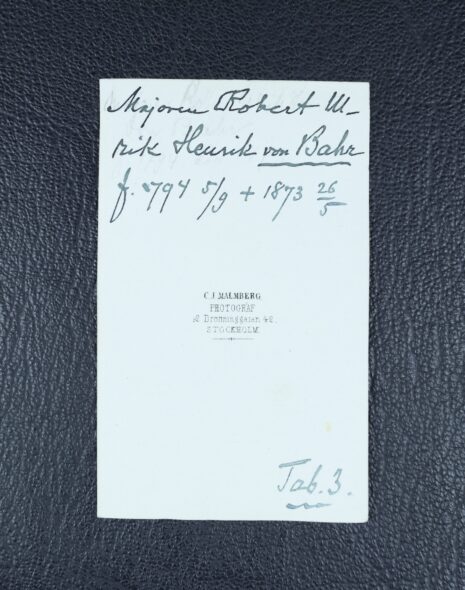 Majoren Robert Ul-
rik Henrik von Bahr
f. 1794 5/9 + 1873 26/5
C J MALMBERG
FOTOGRAF
42 Drottninggatan 42.
STOCKHOLM.
Tab. 3.